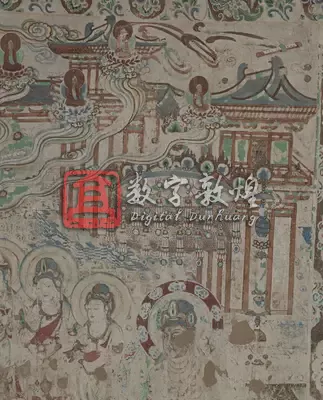 数字敦煌
Digital Dunhuang